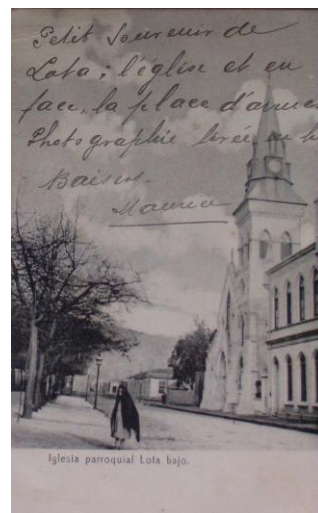 Petit souvenir de
Lota; l'église et en
face, la place d'armes
Photographie tirée en
Baisers.
Maurice
Iglesia parroquial Lota bajo.